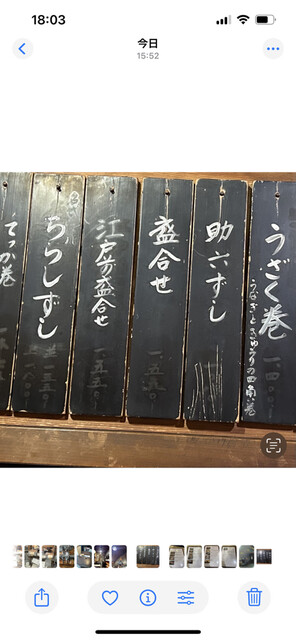 18:03
今日
15:52
うざく巻
うなぎときゅうりの四角い巻
一、四〇〇
助六ずし
盛合せ
一、五五〇
江戸前盛合せ
一、五五〇
ちらしずし
てっか巻